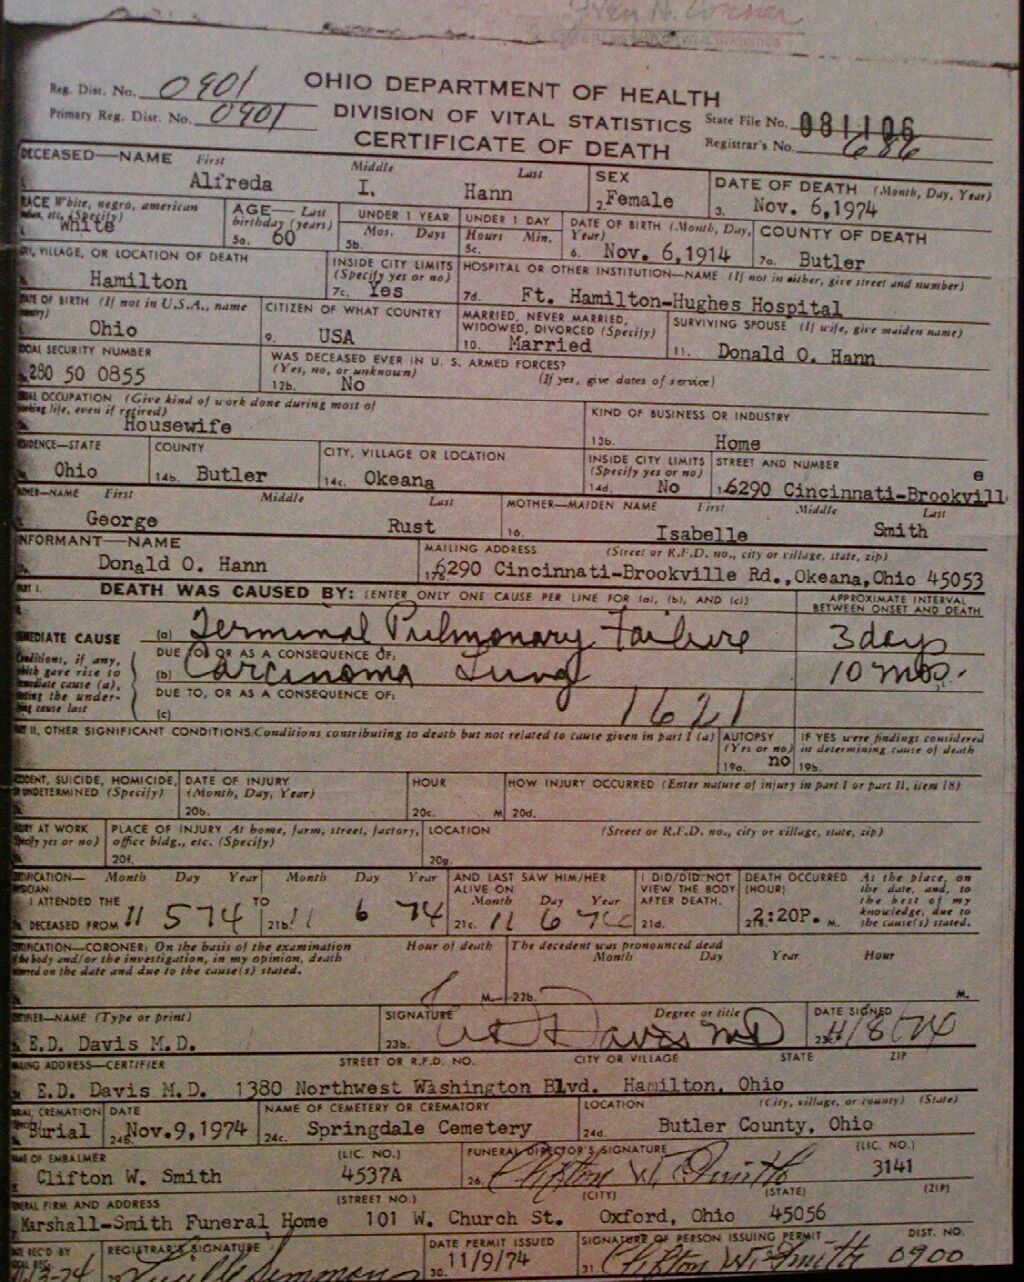 Reg. Dist. No. 0901 OHIO DEPARTMENT OF HEALTH
Primary Reg. Dist. No. 0901 DIVISION OF VITAL STATISTICS State File No. 081106
CERTIFICATE OF DEATH Registrar's No. 686
DECEASED—NAME First Middle Last SEX DATE OF DEATH (Month, Day, Year)
Alfreda I. Hann 2. Female 3. Nov. 6,1974
RACE White, negro, american AGE—Last UNDER 1 YEAR UNDER 1 DAY DATE OF BIRTH (Month, Day, COUNTY OF DEATH
etc. (Specify) birthday (years) Mos. Days Hours Min. Year)
White 5a. 60 5b. 5c. 6. Nov. 6,1914 7a. Butler
VILLAGE, OR LOCATION OF DEATH INSIDE CITY LIMITS HOSPITAL OR OTHER INSTITUTION—NAME (If not in either, give street and number)
(Specify yes or no)
Hamilton 7c. Yes 7d. Ft. Hamilton-Hughes Hospital
OF BIRTH (If not in U.S.A., name CITIZEN OF WHAT COUNTRY MARRIED, NEVER MARRIED, SURVIVING SPOUSE (If wife, give maiden name)
WIDOWED, DIVORCED (Specify)
Ohio 9. USA 10. Married 11. Donald O. Hann
SOCIAL SECURITY NUMBER WAS DECEASED EVER IN U. S. ARMED FORCES?
(Yes, no, or unknown) (If yes, give dates of service)
280 50 0855 12b. No
OCCUPATION (Give kind of work done during most of KIND OF BUSINESS OR INDUSTRY
life, even if retired)
Housewife 13b. Home
STATE COUNTY CITY, VILLAGE OR LOCATION INSIDE CITY LIMITS STREET AND NUMBER
(Specify yes or no) e
Ohio 14b. Butler 14c. Okeana 14d. No 6290 Cincinnati-Brookvill
NAME First Middle Last MOTHER—MAIDEN NAME First Middle Last
George Rust 16. Isabelle Smith
INFORMANT—NAME MAILING ADDRESS (Street or R.F.D. no., city or village, state, zip)
Donald O. Hann 6290 Cincinnati-Brookville Rd.,Okeana,Ohio 45053
PART I. DEATH WAS CAUSED BY: [ENTER ONLY ONE CAUSE PER LINE FOR (a), (b), AND (c)] APPROXIMATE INTERVAL
BETWEEN ONSET AND DEATH
CAUSE (a) Terminal Pulmonary Failure 3 days
Conditions, if any, DUE TO, OR AS A CONSEQUENCE OF:
which gave rise to (b) Carcinoma Lung 10 mos.
immediate cause (a), DUE TO, OR AS A CONSEQUENCE OF:
stating the under-
lying cause last (c) 1621
II, OTHER SIGNIFICANT CONDITIONS. Conditions contributing to death but not related to cause given in part I (a) AUTOPSY IF YES were findings considered
(Yes or no) in determining cause of death
19a. no 19b.
SUICIDE, HOMICIDE, DATE OF INJURY HOUR HOW INJURY OCCURRED (Enter nature of injury in part I or part II, item 18)
UNDETERMINED (Specify) (Month, Day, Year)
20b. 20c. M 20d.
AT WORK PLACE OF INJURY At home, farm, street, factory, LOCATION (Street or R.F.D. no., city or village, state, zip)
yes or no) office bldg., etc. (Specify)
20f. 20g.
Month Day Year Month Day Year AND LAST SAW HIM/HER I DID/DID NOT DEATH OCCURRED At the place, on
ALIVE ON VIEW THE BODY (HOUR) the date, and, to
I ATTENDED THE TO Month Day Year AFTER DEATH. the best of my
knowledge, due to
DECEASED FROM 11 5 74 21b. 11 6 74 21c. 11 6 74 21d. 2:20P. M. the cause(s) stated.
CORONER: On the basis of the examination Hour of death The decedent was pronounced dead
body and/or the investigation, in my opinion, death Month Day Year Hour
on the date and due to the cause(s) stated.
M. 22b. M.
NAME (Type or print) SIGNATURE Degree or title DATE SIGNED
E.D. Davis M.D. 23b. Davis MD 11/8/74
ADDRESS—CERTIFIER STREET OR R.F.D. NO. CITY OR VILLAGE STATE ZIP
E.D. Davis M.D. 1380 Northwest Washington Blvd. Hamilton, Ohio
CREMATION DATE NAME OF CEMETERY OR CREMATORY LOCATION (City, village, or county) (State)
Burial 24b. Nov.9,1974 24c. Springdale Cemetery 24d. Butler County, Ohio
OF EMBALMER (LIC. NO.) FUNERAL DIRECTOR'S SIGNATURE (LIC. NO.)
Clifton W. Smith 4537A 26. Clifton W. Smith 3141
FIRM AND ADDRESS (STREET NO.) (CITY) (STATE) (ZIP)
Marshall-Smith Funeral Home 101 W. Church St. Oxford, Ohio 45056
REC'D BY REGISTRAR'S SIGNATURE DATE PERMIT ISSUED SIGNATURE OF PERSON ISSUING PERMIT DIST. NO.
30. 11/9/74 31. Clifton W. Smith 0900